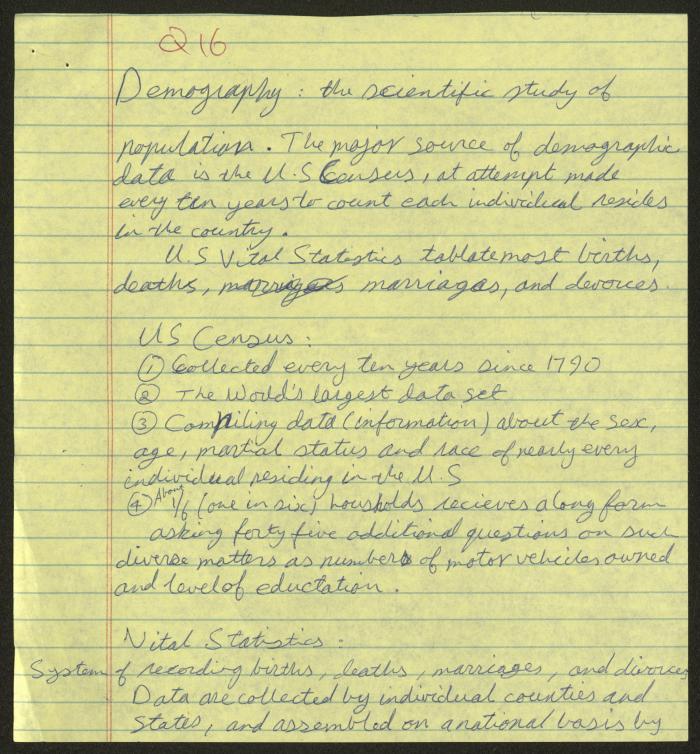 Q 16
Demography : the scientific study of
population. The major source of demographic
data is the U.S Census, at attempt made
every ten years to count each individual resides
in the country.
U.S Vital Statistics tablate most births,
deaths, marriages, and devorces.
US Census :
① Collected every ten years since 1790
② The World's largest data set
③ Compiling data (information) about the sex,
age, martial status and race of nearly every
individual residing in the U.S
④ About 1/6 (one in six) housholds recieves a long form
asking forty five additional questions on such
diverse matters as number of motor vehicles owned
and level of eductation.
Vital Statistics :
System of recording births, deaths, marriages, and divorces
Data are collected by individual counties and
States, and assembled on a national basis by